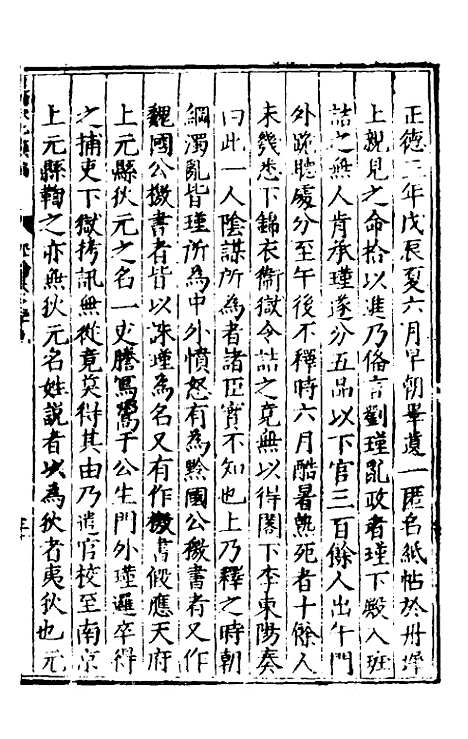 正德三年戊辰夏六月早朝畢遺一匿名紙帖於丹墀
上親見之命拾以進乃俻言劉瑾亂政者瑾下殿入班
詰之無人肯承瑾遂分五品以下官三百餘人出午門
外跪聽處分至午後不釋時六月酷暑熱死者十餘人
未幾悉下錦衣衛獄令詰之竟無以得閣下李東陽奏
曰此一人陰謀所為者諸臣實不知也上乃釋之時朝
綱濁亂皆瑾所為中外憤怒有為黔國公檄書者又作
魏國公檄書者皆以誅瑾為名又有作檄書假應天府
上元縣狄元之名一吏謄寫鬻于公生門外瑾邏卒得
之捕吏下獄拷訊無從竟莫得其由乃遣官校至南京
上元縣鞫之亦無狄元名姓説者以為狄者夷狄也元